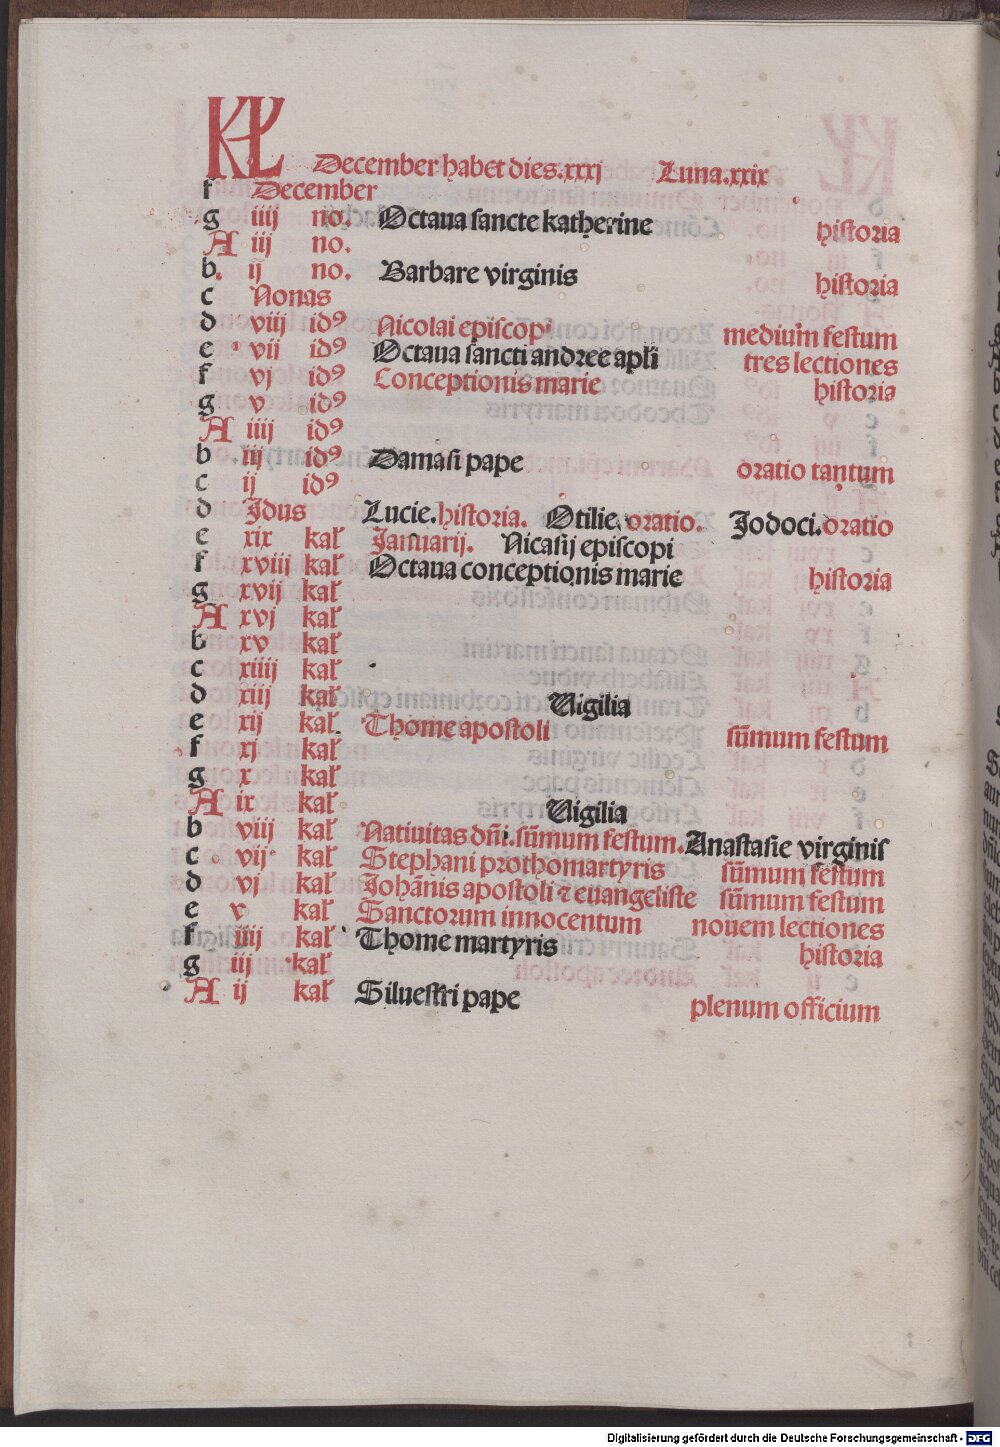 KL December habet dies.xxxj Luna.xxix
f December
g iiij no. Octaua sancte katherine historia
A iij no.
b. ij no. Barbare virginis historia
c Nonas
d viij idꝰ Nicolai episcopi medium festum
e vij idꝰ Octaua sancti andree apl̃i tres lectiones
f vj idꝰ Conceptionis marie historia
g v idꝰ
A iiij idꝰ
b iij idꝰ Damasi pape oratio tantum
c ij idꝰ
d Jdus Lucie.historia. Otilie.oratio. Jodoci.oratio
e xix kal̃ Januarij. Nicasij episcopi
f xviij kal̃ Octaua conceptionis marie historia
g xvij kal̃
A xvj kal̃
b xv kal̃
c xiiij kal̃
d xiij kal̃ Uigilia
e xij kal̃. Thome apostoli sūmum festum
f xj kal̃
g x kal̃
A ix kal̃ Uigilia
b viij kal̃ Natiuitas dñi.sūmum festum.Anastasie virginis
c vij kal̃ Stephani prothomartyris sūmum festum
d vj kal̃ Johānis apostoli ⁊ euangeliste sūmum festum
e v kal̃ Sanctorum innocentum nouem lectiones
f iiij kal̃ Thome martyris historia
g iij kal̃
A ij kal̃ Siluestri pape plenum officium
Digitalisierung gefördert durch die Deutsche Forschungsgemeinschaft - DFG